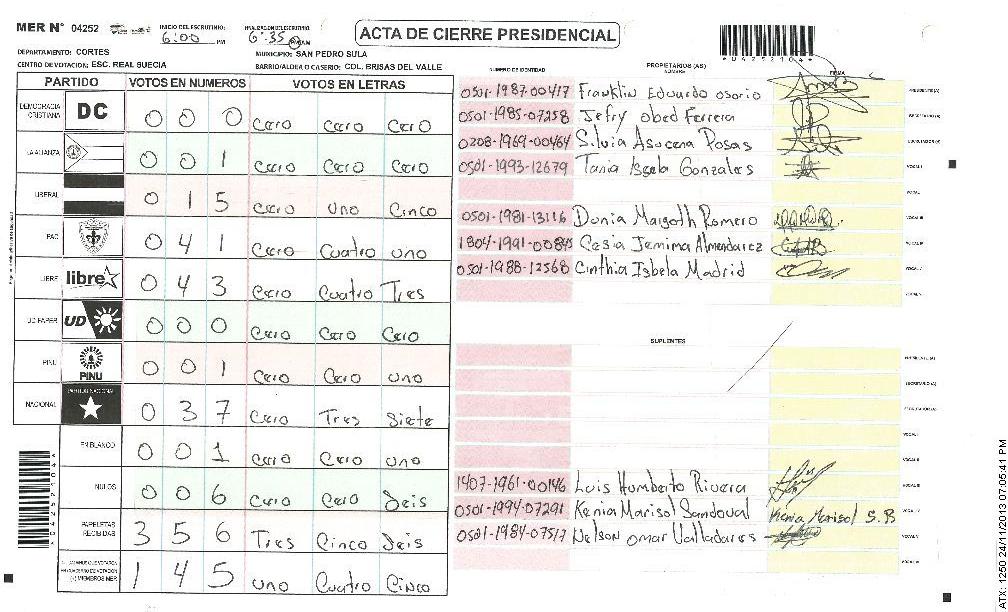 MER N° 04252
INICIO DEL ESCRUTINIO: 6:00 PM
FINALIZACION DEL ESCRUTINIO: 6:35
ACTA DE CIERRE PRESIDENCIAL
DEPARTAMENTO: CORTES
MUNICIPIO: SAN PEDRO SULA
CENTRO DE VOTACION: ESC. REAL SUECIA
BARRIO/ALDEA O CASERIO: COL. BRISAS DEL VALLE
PARTIDO VOTOS EN NUMEROS VOTOS EN LETRAS
DEMOCRACIA CRISTIANA DC 0 0 0 Cero Cero Cero
LA ALIANZA 0 0 1 Cero Cero Cero
LIBERAL 0 1 5 Cero Uno Cinco
PAC 0 4 1 Cero Cuatro uno
LIBRE libre 0 4 3 Cero Cuatro Tres
UD FAPER UD 0 0 0 Cero Cero Cero
PINU PINU 0 0 1 Cero Cero uno
NACIONAL PARTIDO NACIONAL 0 3 7 Cero Tres Siete
EN BLANCO 0 0 1 Cero Cero uno
NULOS 0 0 6 Cero Cero Seis
PAPELETAS RECIBIDAS 3 5 6 Tres Cinco Seis
(+) MIEMBROS MER 1 4 5 uno Cuatro Cinco
PROPIETARIOS (AS)
NUMERO DE IDENTIDAD NOMBRE FIRMA
0501-1987-00417 Franklin Eduardo Osorio PRESIDENTE(A)
0501-1985-07258 Jefry obed Ferrera SECRETARIO (A)
0208-1969-00464 Silvia Asucena Posas ESCRUTADOR (A)
0501-1993-12679 Tania Isela Gonzales VOCAL I
0501-1981-13116 Dunia Margoth Romero VOCAL III
1804-1991-00845 Cesia Jemima Almendarez
0501-1988-12568 Cinthia Isbela Madrid
SUPLENTES
1407-1961-00146 Luis Humberto Rivera
0501-1994-07291 Kenia Marisol Sandoval Kenia Marisol S.B
0501-1984-07517 Nelson omar Valladares
ATX: 1250 24/11/2013 07:05:41 PM